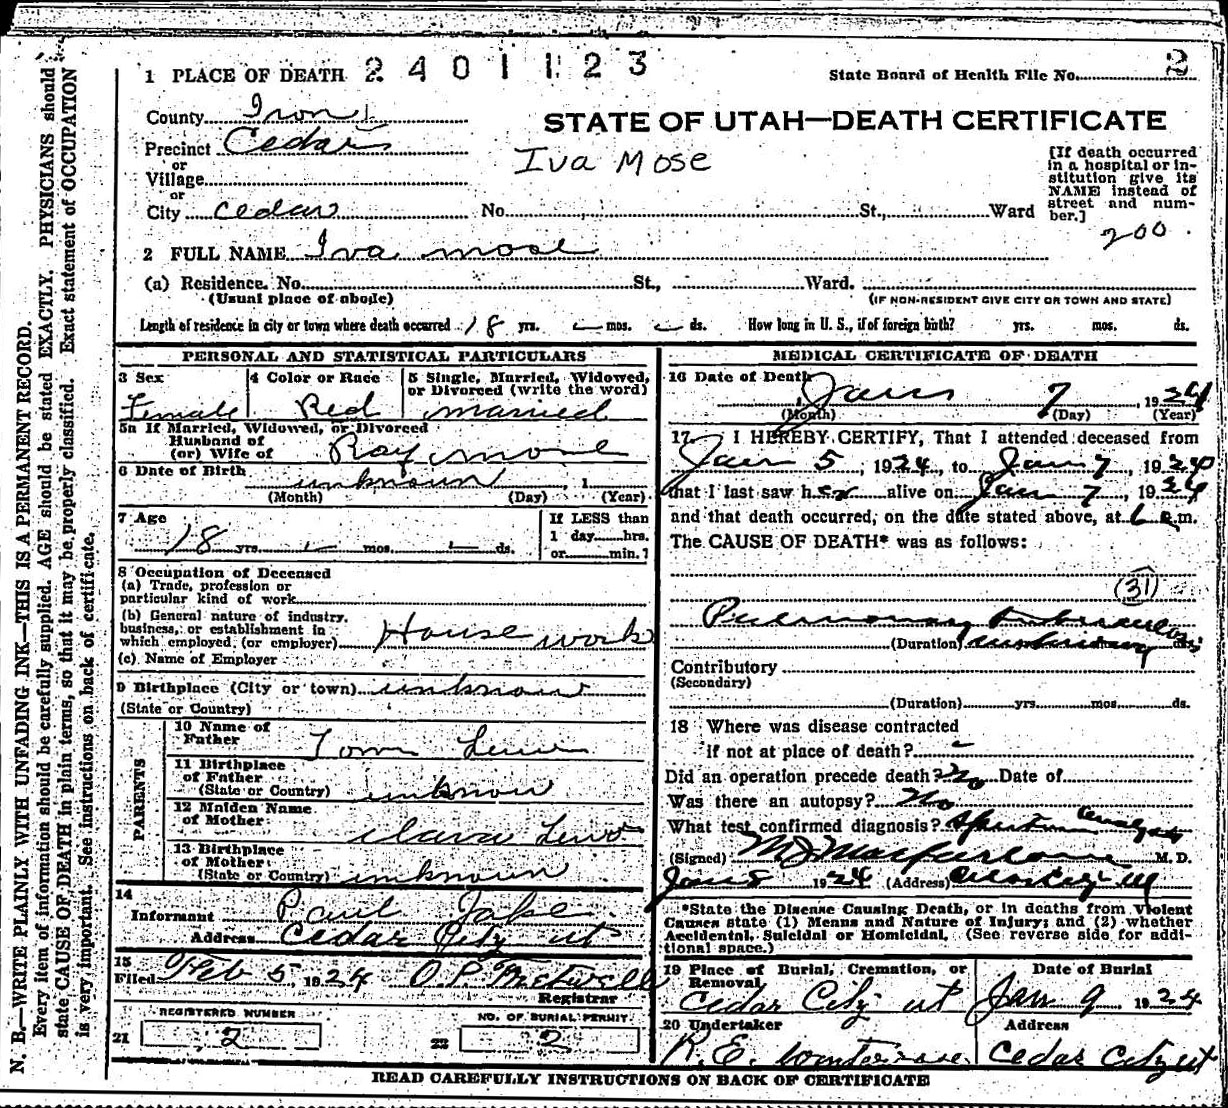 1 PLACE OF DEATH 2401123
State Board of Health File No. 2
County Iron
STATE OF UTAH—DEATH CERTIFICATE
Precinct Cedar
Iva Mose
or
Village
or
City Cedar No. St., Ward
[If death occurred
in a hospital or in-
stitution give its
NAME instead of
street and num-
ber.]
200
2 FULL NAME Iva Mose
(a) Residence. No. St., Ward.
(Usual place of abode)
(IF NON-RESIDENT GIVE CITY OR TOWN AND STATE)
Length of residence in city or town where death occurred 18 yrs. – mos. – ds. How long in U. S., if of foreign birth? yrs. mos. ds.
PERSONAL AND STATISTICAL PARTICULARS
3 Sex
Female
4 Color or Race
Red
5 Single, Married, Widowed,
or Divorced (write the word)
married
5a If Married, Widowed, or Divorced
Husband of
(or) Wife of Ray Mose
6 Date of Birth unknown 1
(Month) (Day) (Year)
7 Age
18 yrs. – mos. – ds.
If LESS than
1 day hrs.
or min.?
8 Occupation of Deceased
(a) Trade, profession or
particular kind of work
(b) General nature of industry,
business, or establishment in
which employed (or employer) House work
(c) Name of Employer
9 Birthplace (City or town) unknown
(State or Country)
PARENTS
10 Name of
Father Tom
11 Birthplace
of Father
(State or Country) unknown
12 Maiden Name
of Mother
13 Birthplace
of Mother
(State or Country) unknown
14
Informant Paul Jake
Address Cedar City ut
15
Filed Feb 5, 1924 O.P.
Registrar
REGISTERED NUMBER
21 2
NO. OF BURIAL PERMIT
22 2
MEDICAL CERTIFICATE OF DEATH
16 Date of Death
Jan 7 1924
(Month) (Day) (Year)
17 I HEREBY CERTIFY, That I attended deceased from
Jan 5, 1924, to Jan 7, 1924
that I last saw her alive on Jan 7, 1924
and that death occurred, on the date stated above, at 6 m.
The CAUSE OF DEATH* was as follows:
31
Pulmonary Tuberculosis
(Duration) unknown
Contributory
(Secondary)
(Duration) yrs. mos. ds.
18 Where was disease contracted
if not at place of death? –
Did an operation precede death? No Date of
Was there an autopsy? No
What test confirmed diagnosis? Sputum analysis
(Signed) M J Macfarlane M. D.
Jan 8 1924 (Address) Cedar City Ut
*State the Disease Causing Death, or in deaths from Violent
Causes state (1) Means and Nature of Injury; and (2) whether
Accidental, Suicidal or Homicidal. (See reverse side for addi-
tional space.)
19 Place of Burial, Cremation, or
Removal
Cedar City ut
Date of Burial
Jan 9 1924
20 Undertaker
R.E.
Address
Cedar City ut
READ CAREFULLY INSTRUCTIONS ON BACK OF CERTIFICATE
N. B.—WRITE PLAINLY WITH UNFADING INK—THIS IS A PERMANENT RECORD.
Every item of information should be carefully supplied. AGE should be stated EXACTLY. PHYSICIANS should
state CAUSE OF DEATH in plain terms, so that it may be properly classified. Exact statement of OCCUPATION
is very important. See instructions on back of certificate.